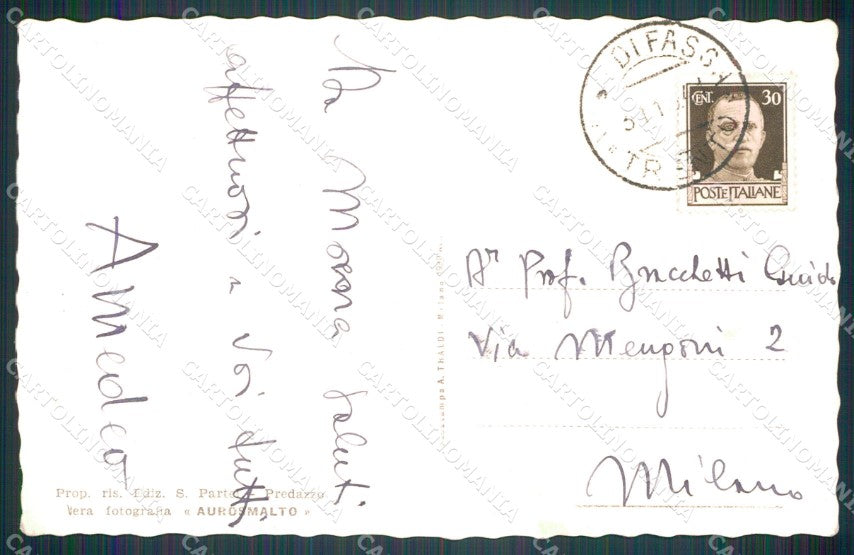 Da Moena saluti
affettuosi a voi tutti
Amedeo
DI FASSA
TRENTO
CENT. 30
POSTE ITALIANE
Prof. Bracchetti Guido
Via Mengoni 2
Milano
Stampa A. TRALDI - Milano
Prop. ris. Ediz. S. Partel - Predazzo
Vera fotografia « AUROSMALTO »
CARTOLINOMANIA